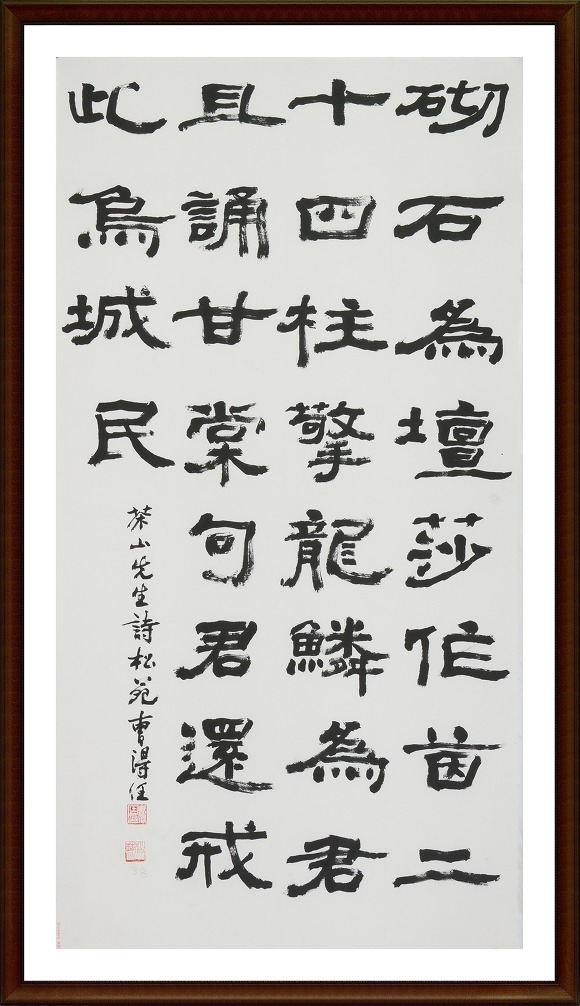 砌石為壇莎作茵二
十四柱擎龍鱗為君
且誦甘棠句君還戒
此烏城民
茶山先生詩松苑曹得任